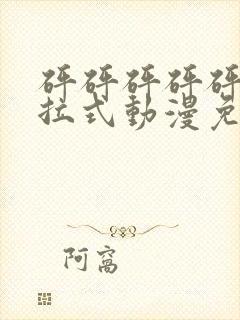 砰砰砰砰砰
拉式動漫免
阿窩